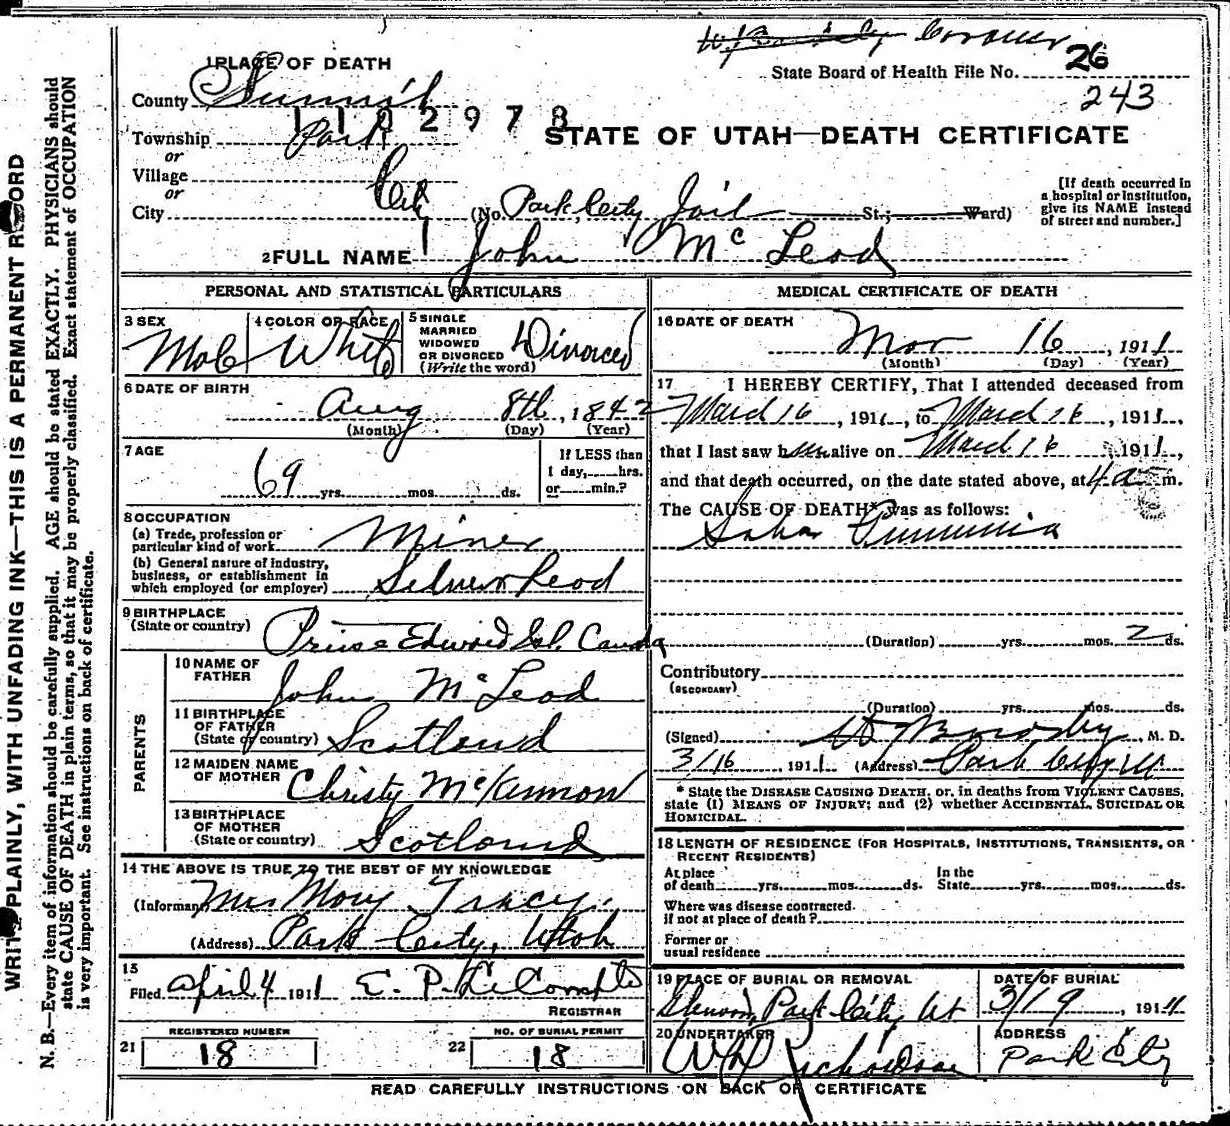 WRITE PLAINLY, WITH UNFADING INK—THIS IS A PERMANENT RECORD
N. B.—Every item of information should be carefully supplied. AGE should be stated EXACTLY. PHYSICIANS should
state CAUSE OF DEATH in plain terms, so that it may be properly classified. Exact statement of OCCUPATION
is very important. See instructions on back of certificate.
Coroner
1 PLACE OF DEATH
State Board of Health File No. 26
243
County Summit
1102978
STATE OF UTAH—DEATH CERTIFICATE
Township Park
or
Village
or
City City (No. Park City Jail St.; Ward)
[If death occurred in
a hospital or institution,
give its NAME instead
of street and number.]
2 FULL NAME John McLeod
PERSONAL AND STATISTICAL PARTICULARS
3 SEX Male
4 COLOR OR RACE White
5 SINGLE
MARRIED
WIDOWED
OR DIVORCED Divorced
(Write the word)
6 DATE OF BIRTH
Aug 8th, 1842
(Month) (Day) (Year)
7 AGE
69 yrs. mos. ds.
If LESS than
1 day, hrs.
or min.?
8 OCCUPATION
(a) Trade, profession or
particular kind of work Miner
(b) General nature of industry,
business, or establishment in
which employed (or employer)
9 BIRTHPLACE
(State or country) Prince Edward Isl. Canada
PARENTS
10 NAME OF
FATHER John McLeod
11 BIRTHPLACE
OF FATHER
(State or country) Scotland
12 MAIDEN NAME
OF MOTHER Christy McKinnon
13 BIRTHPLACE
OF MOTHER
(State or country) Scotland
14 THE ABOVE IS TRUE TO THE BEST OF MY KNOWLEDGE
(Informant) Mrs Mary Tracy
(Address) Park City, Utah
15
Filed April 4 1911 E. P. LeCompte
REGISTRAR
REGISTERED NUMBER
21 18
NO. OF BURIAL PERMIT
22 18
MEDICAL CERTIFICATE OF DEATH
16 DATE OF DEATH
Mar 16, 1911
(Month) (Day) (Year)
17 I HEREBY CERTIFY, That I attended deceased from
March 16, 1911, to March 16, 1911,
that I last saw him alive on March 16 1911,
and that death occurred, on the date stated above, at 4 a m.
The CAUSE OF DEATH* was as follows:
(Duration) yrs. mos. 2 ds.
Contributory
(SECONDARY)
(Duration) yrs. mos. ds.
(Signed) , M. D.
3/16 1911 (Address) Park City Ut
* State the DISEASE CAUSING DEATH, or, in deaths from VIOLENT CAUSES,
state (1) MEANS OF INJURY; and (2) whether ACCIDENTAL, SUICIDAL OR
HOMICIDAL.
18 LENGTH OF RESIDENCE (FOR HOSPITALS, INSTITUTIONS, TRANSIENTS, OR
RECENT RESIDENTS)
At place
of death yrs. mos. ds.
In the
State yrs. mos. ds.
Where was disease contracted.
if not at place of death?
Former or
usual residence
19 PLACE OF BURIAL OR REMOVAL
Glenwood Park City Ut
DATE OF BURIAL
3/19, 1911
20 UNDERTAKER
Richardson
ADDRESS
Park City
READ CAREFULLY INSTRUCTIONS ON BACK OF CERTIFICATE